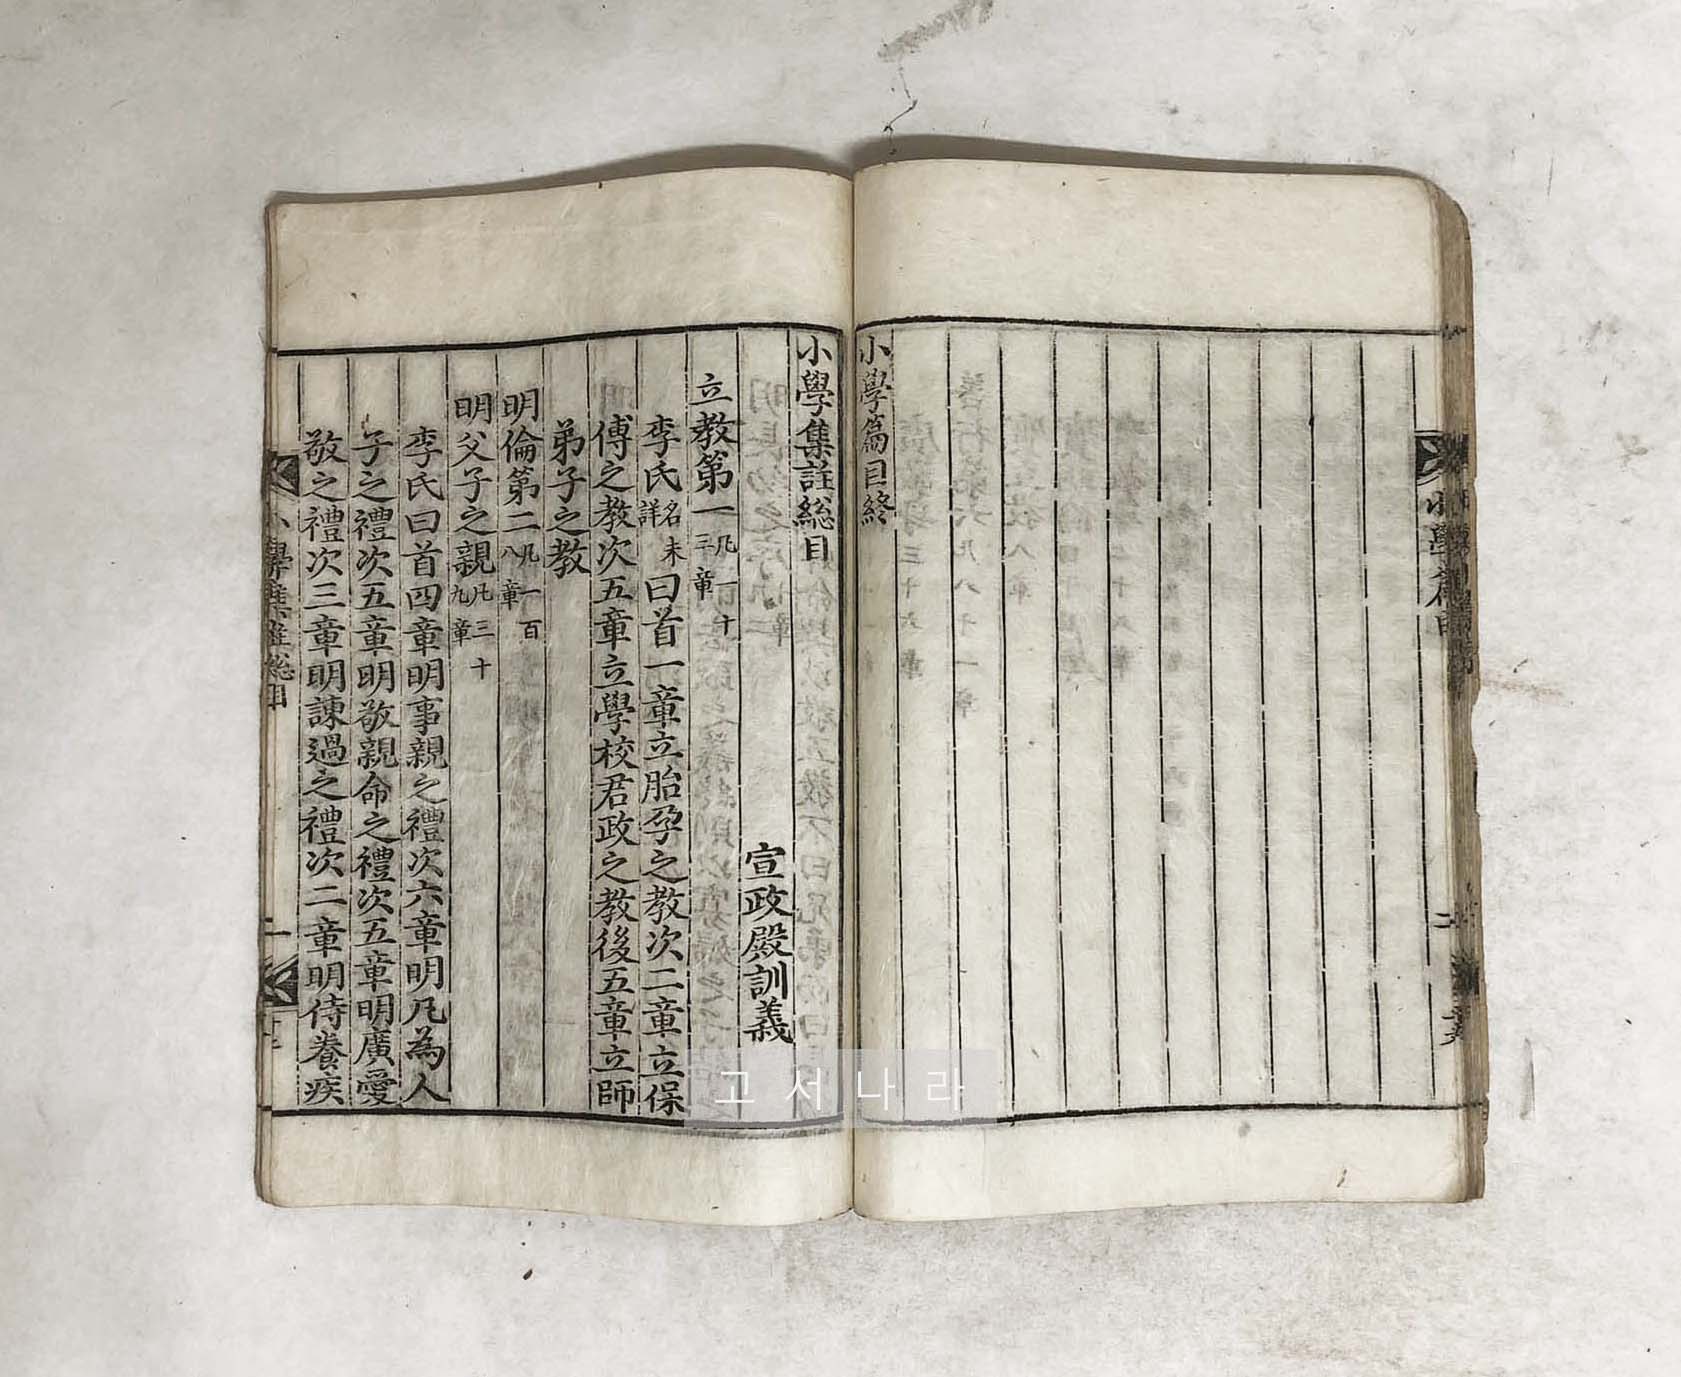 小學篇目終
小學集註總目
宣政殿訓義
立教第一凡一十三章
李氏名未詳曰首一章立胎孕之教次二章立保
傅之教次五章立學校君政之教後五章立師
弟子之教
明倫第二凡一百八章
明父子之親凡三十九章
李氏曰首四章明事親之禮次六章明凡為人
子之禮次五章明敬親命之禮次五章明廣愛
敬之禮次三章明諫過之禮次二章明侍養疾
小學集註總目 一
고서나라